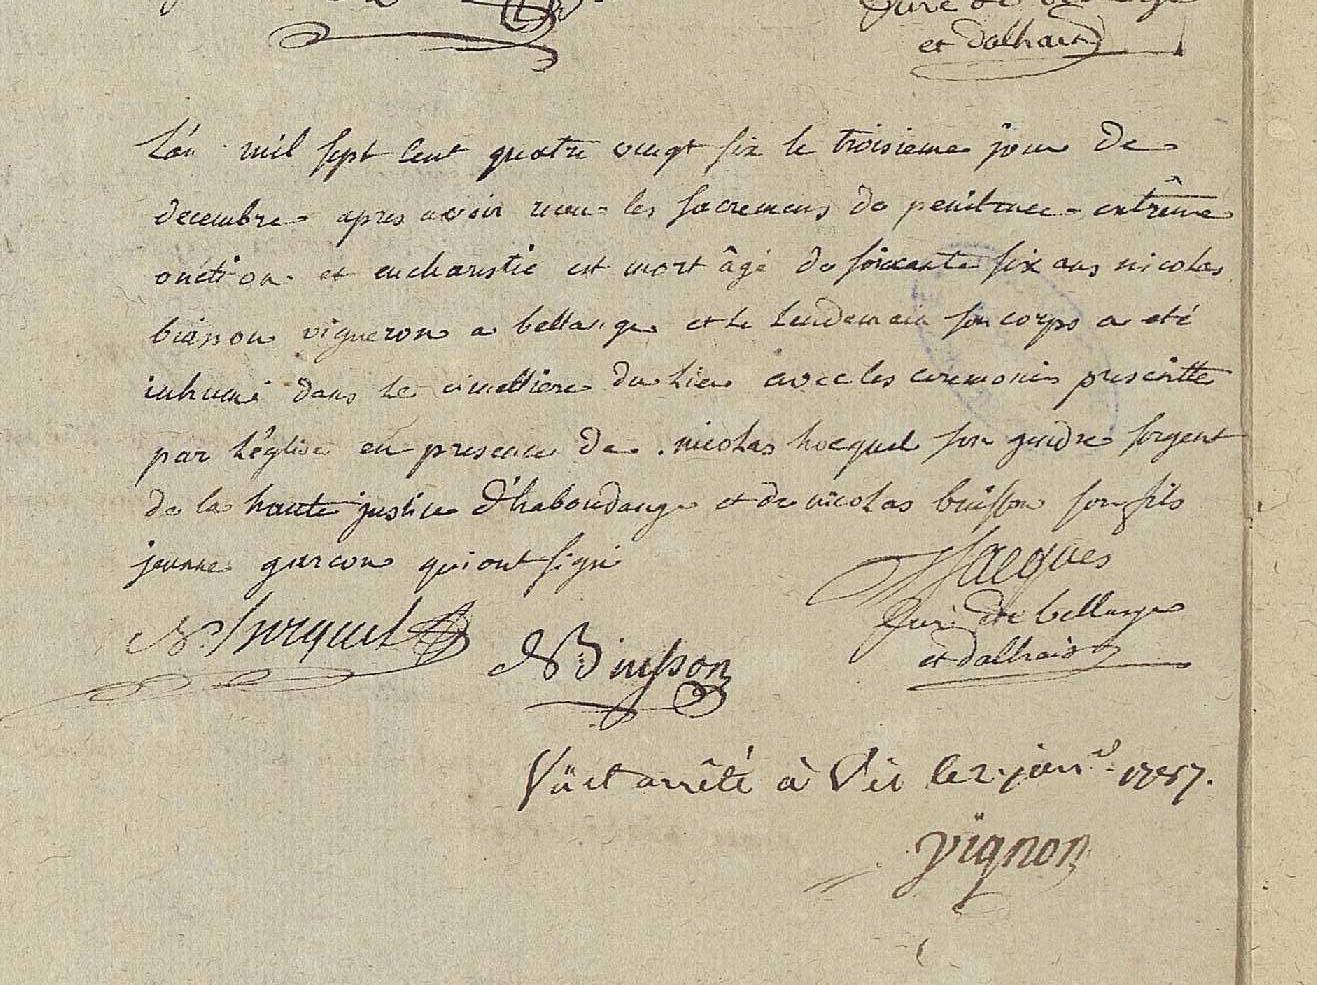 Curé de bellange
et dalhain
L'an mil sept cent quatre vingt six le troisieme jour de
decembre apres avoir recu les sacremens de penitence extrême
onction et eucharistie est mort âgé de soixante six ans nicolas
buisson vigneron a bellange et le lendemain son corps a eté
inhumé dans le cimettiere du lieu avec les ceremonies prescritte
par l'église en presence de nicolas hocquel son gendre sergent
de la haute justice d'haboudange et de nicolas buisson son fils
jeunne garcon qui ont signé
N hocquel
N Buisson
Jacques
Curé de bellange
et dalhain
Vü et arrêté à Vic le 2. janv.er 1787.
Vignon